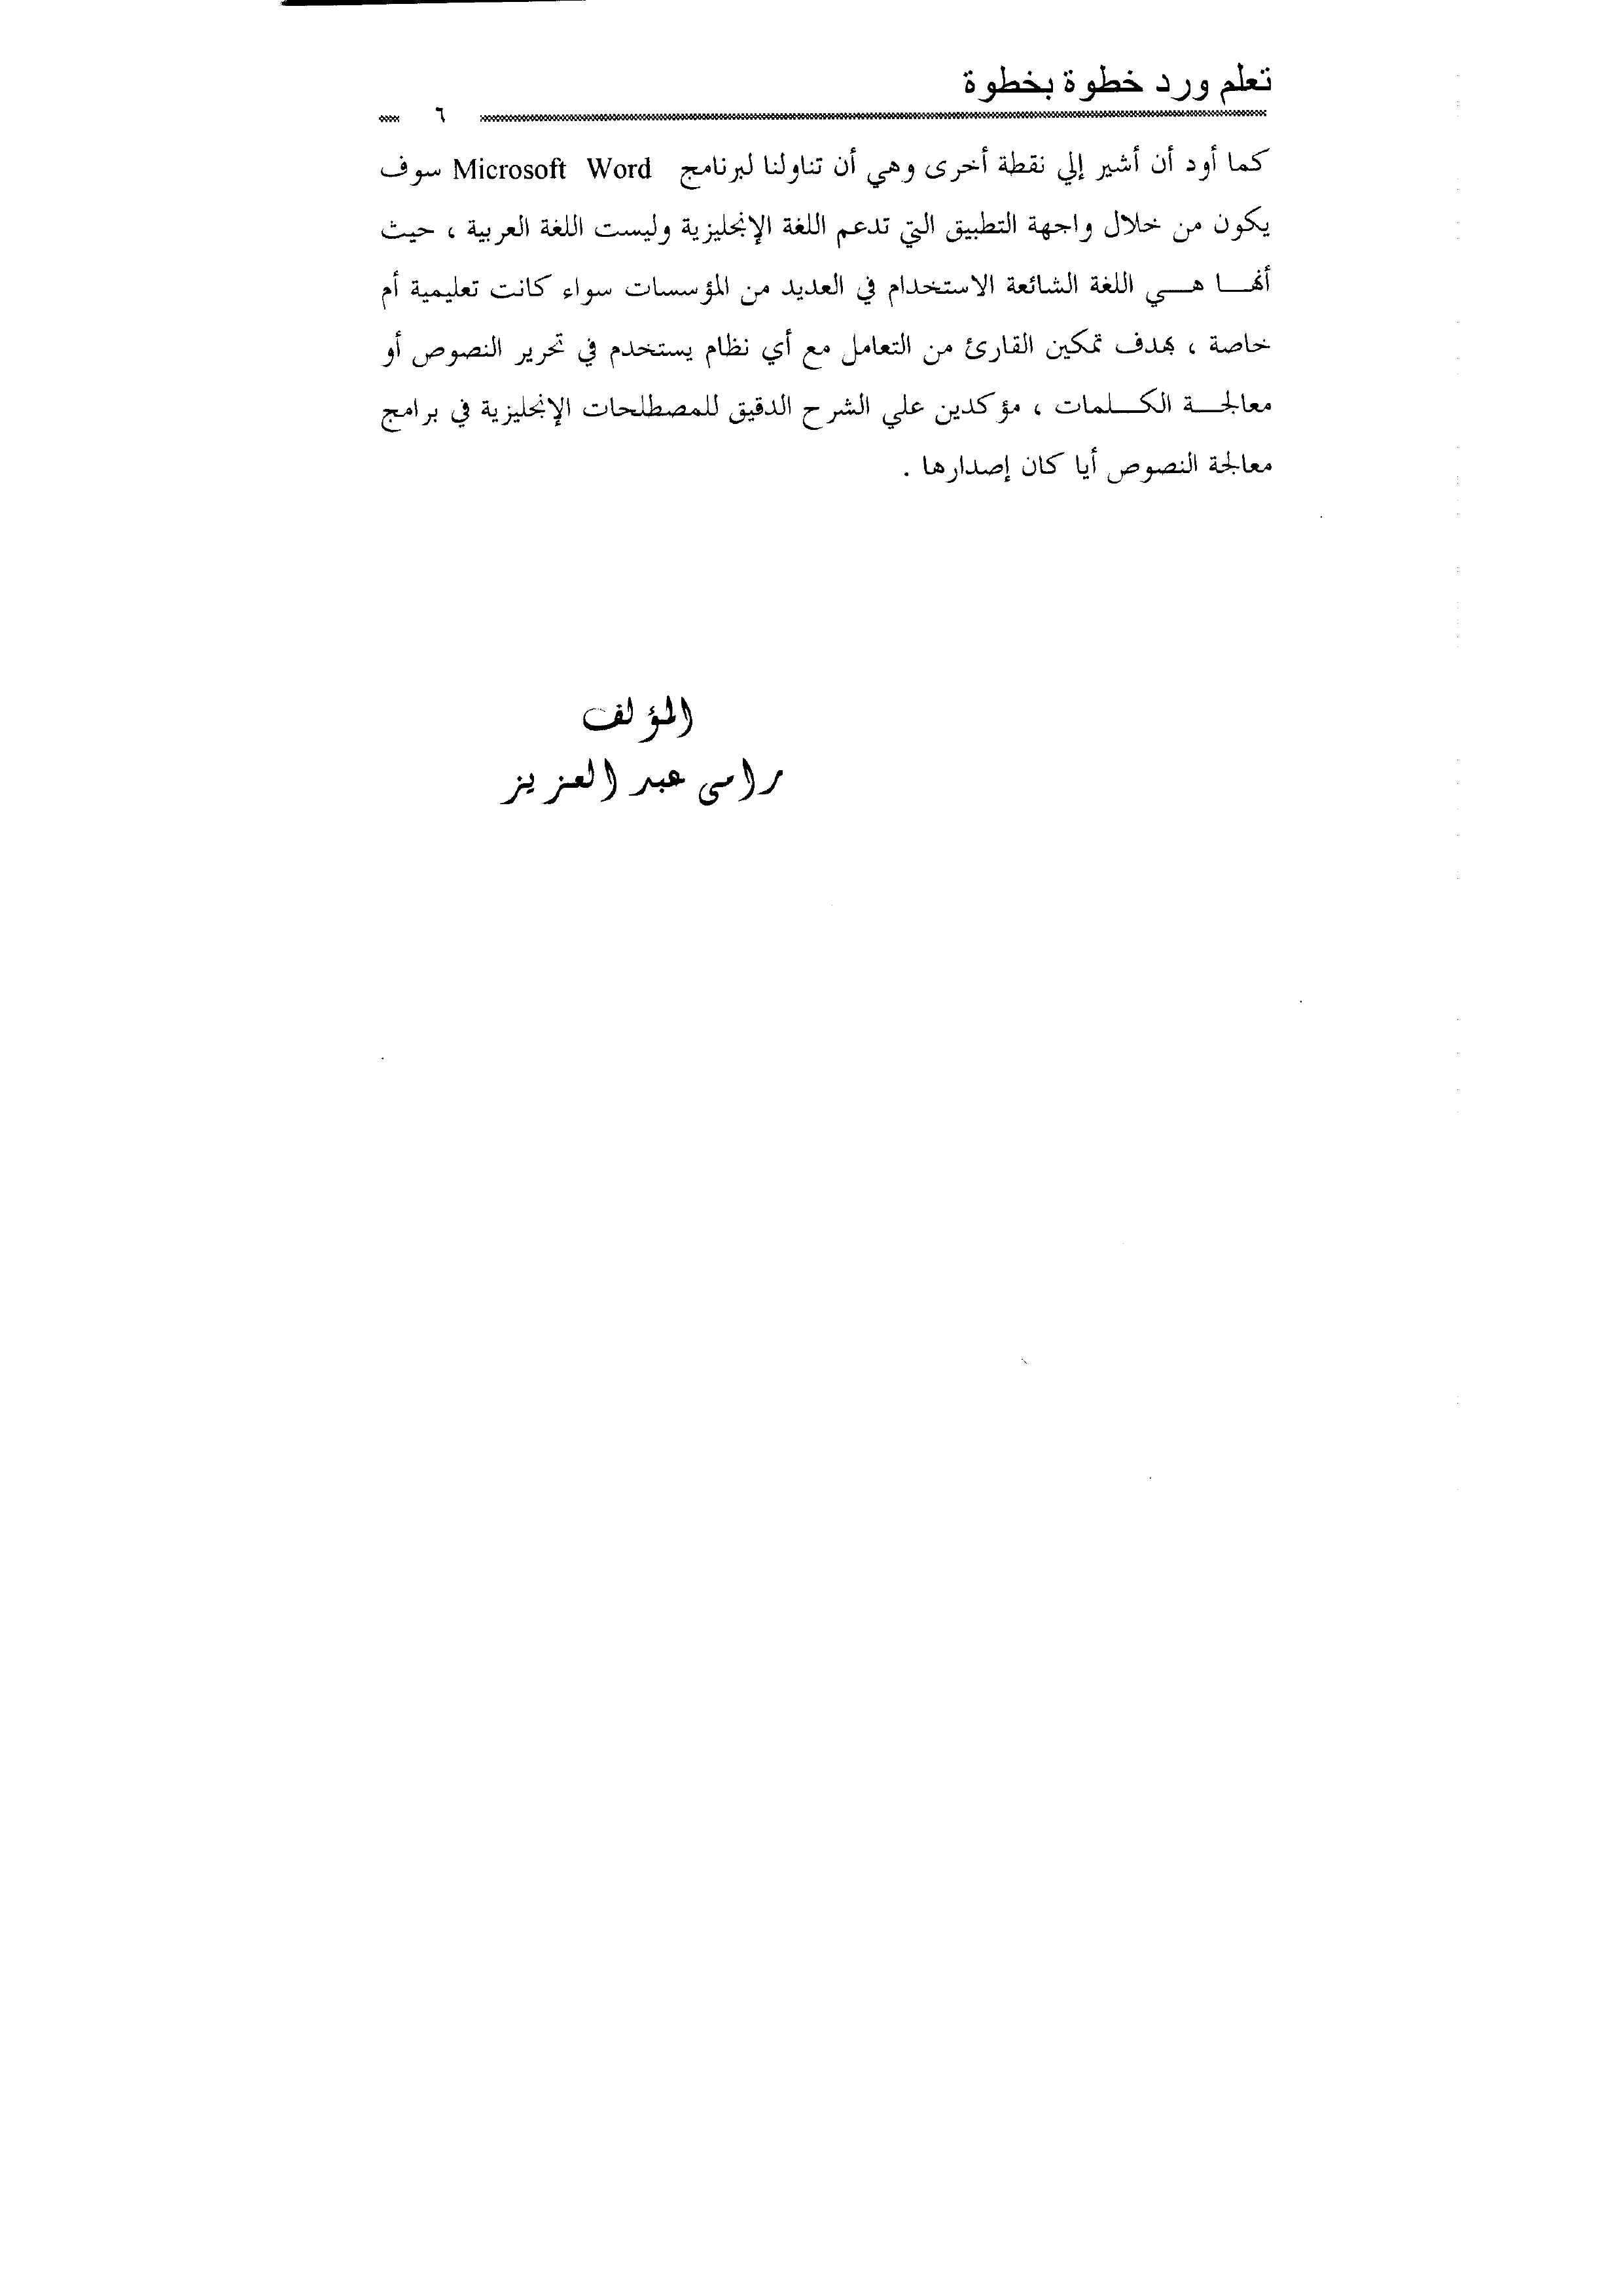 تعلم ورد خطوة بخطوة
٦
كما أود أن أشير إلي نقطة أخرى وهي أن تناولنا لبرنامج Microsoft Word سوف
يكون من خلال واجهة التطبيق التي تدعم اللغة الإنجليزية وليست اللغة العربية ، حيث
أنهــا هــي اللغة الشائعة الاستخدام في العديد من المؤسسات سواء كانت تعليمية أم
خاصة ، بهدف تمكين القارئ من التعامل مع أي نظام يستخدم في تحرير النصوص أو
معالجــة الكــلمات ، مؤكدين علي الشرح الدقيق للمصطلحات الإنجليزية في برامج
معالجة النصوص أيا كان إصدارها .
المؤلف
رامى عبد العزيز